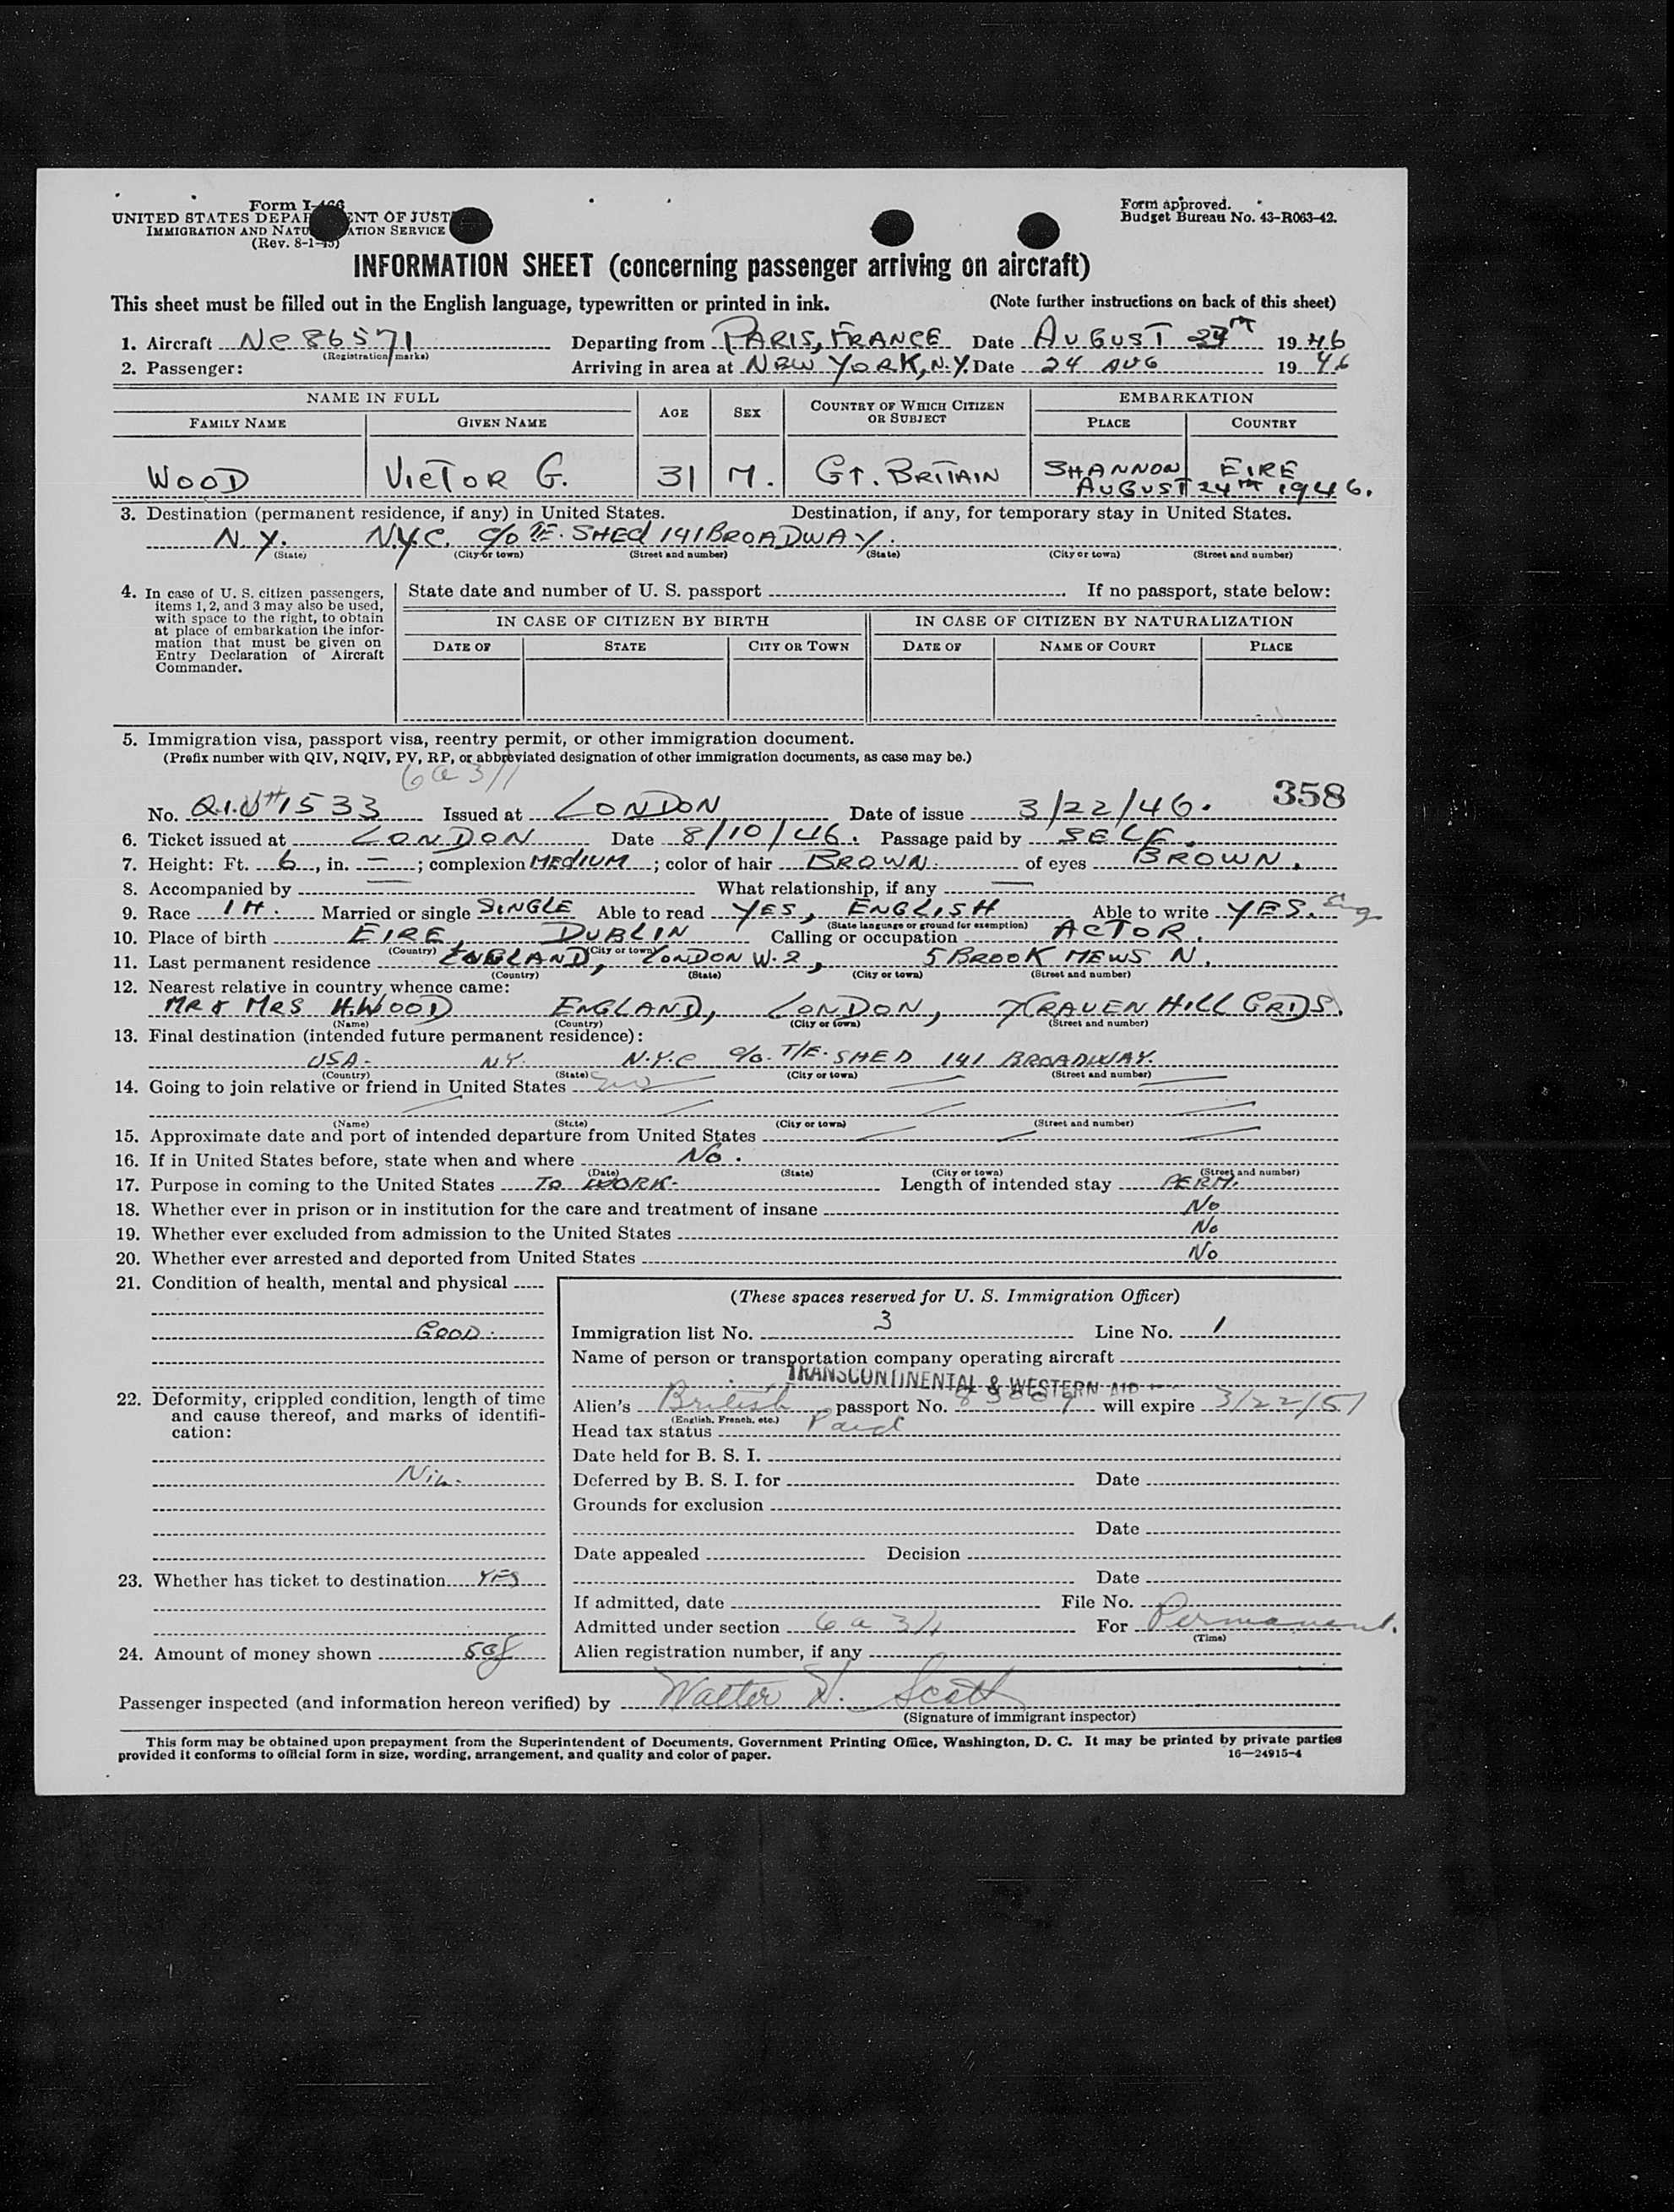 Form I-466
UNITED STATES DEPARTMENT OF JUSTICE
IMMIGRATION AND NATURALIZATION SERVICE
(Rev. 8-1-45)
Form approved.
Budget Bureau No. 43-R063-42.
INFORMATION SHEET (concerning passenger arriving on aircraft)
This sheet must be filled out in the English language, typewritten or printed in ink. (Note further instructions on back of this sheet)
1. Aircraft NC 86571 Departing from PARIS, FRANCE Date AUGUST 24TH 1946
(Registration marks)
2. Passenger: Arriving in area at NEW YORK, N.Y. Date 24 AUG 1946
NAME IN FULL AGE SEX COUNTRY OF WHICH CITIZEN OR SUBJECT EMBARKATION
FAMILY NAME GIVEN NAME PLACE COUNTRY
WOOD VICTOR G. 31 M. GT. BRITAIN SHANNON EIRE
AUGUST 24TH 1946.
3. Destination (permanent residence, if any) in United States. Destination, if any, for temporary stay in United States.
N.Y. N.Y.C. c/o T/E. SHED 141 BROADWAY.
(State) (City or town) (Street and number) (State) (City or town) (Street and number)
4. In case of U. S. citizen passengers, items 1, 2, and 3 may also be used, with space to the right, to obtain at place of embarkation the information that must be given on Entry Declaration of Aircraft Commander.
State date and number of U. S. passport If no passport, state below:
IN CASE OF CITIZEN BY BIRTH IN CASE OF CITIZEN BY NATURALIZATION
DATE OF STATE CITY OR TOWN DATE OF NAME OF COURT PLACE
5. Immigration visa, passport visa, reentry permit, or other immigration document.
(Prefix number with QIV, NQIV, PV, RP, or abbreviated designation of other immigration documents, as case may be.)
6 a 3/1
358
No. Q.I.V # 1533 Issued at LONDON Date of issue 3/22/46.
6. Ticket issued at LONDON Date 8/10/46. Passage paid by SELF.
7. Height: Ft. 6, in. —; complexion MEDIUM; color of hair BROWN. of eyes BROWN.
8. Accompanied by — What relationship, if any —
9. Race IH. Married or single SINGLE Able to read YES, ENGLISH Able to write YES. Eng
(State language or ground for exemption)
10. Place of birth EIRE, DUBLIN Calling or occupation ACTOR.
(Country) (City or town)
11. Last permanent residence ENGLAND, LONDON W.2, 5 BROOK MEWS N.
(Country) (State) (City or town) (Street and number)
12. Nearest relative in country whence came:
MR & MRS H. WOOD ENGLAND, LONDON, 7 CRAVEN HILL GRDS.
(Name) (Country) (City or town) (Street and number)
13. Final destination (intended future permanent residence):
USA. N.Y. N.Y.C c/o. T/E. SHED 141 BROADWAY.
(Country) (State) (City or town) (Street and number)
14. Going to join relative or friend in United States
(Name) (State) (City or town) (Street and number)
15. Approximate date and port of intended departure from United States
16. If in United States before, state when and where No.
(Date) (State) (City or town) (Street and number)
17. Purpose in coming to the United States TO WORK. Length of intended stay PERM.
18. Whether ever in prison or in institution for the care and treatment of insane No
19. Whether ever excluded from admission to the United States No
20. Whether ever arrested and deported from United States No
21. Condition of health, mental and physical
GOOD.
22. Deformity, crippled condition, length of time and cause thereof, and marks of identification:
Nil.
23. Whether has ticket to destination YES
24. Amount of money shown
(These spaces reserved for U. S. Immigration Officer)
Immigration list No. 3 Line No. 1
Name of person or transportation company operating aircraft
TRANSCONTINENTAL & WESTERN AIR
Alien's British passport No. will expire 3/22/51
(English, French, etc.)
Head tax status Paid
Date held for B. S. I.
Deferred by B. S. I. for Date
Grounds for exclusion
Date
Date appealed Decision
Date
If admitted, date File No.
Admitted under section 6 a 3/1 For Permanent.
(Time)
Alien registration number, if any
Passenger inspected (and information hereon verified) by Walter D. Scott
(Signature of immigrant inspector)
This form may be obtained upon prepayment from the Superintendent of Documents, Government Printing Office, Washington, D. C. It may be printed by private parties
provided it conforms to official form in size, wording, arrangement, and quality and color of paper. 16—24915-4